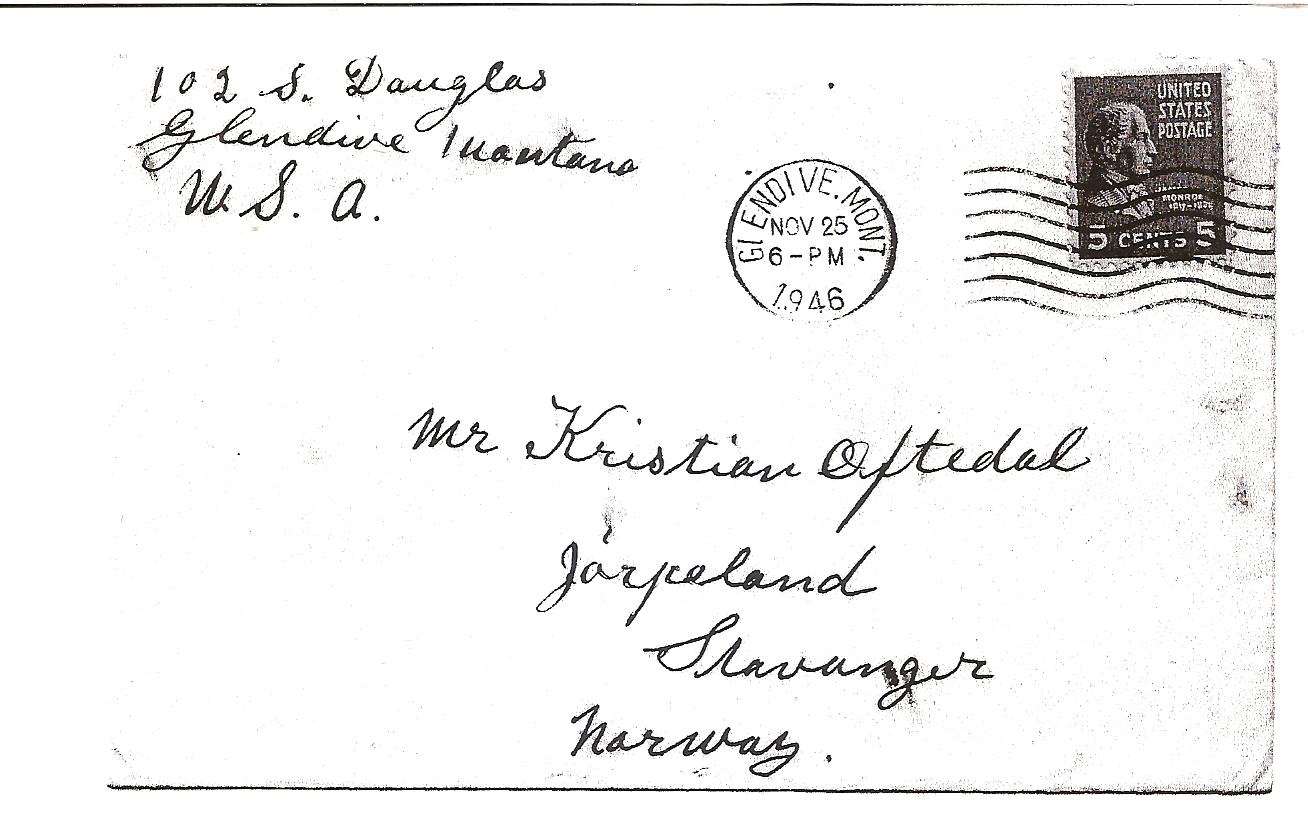 102 S. Douglas
Glendive Montana
U. S. A.
GLENDIVE. MONT.
NOV 25
6-PM
1946
UNITED
STATES
POSTAGE
MONROE
1817-1825
5 CENTS 5
Mr Kristian Oftedal
Jórpeland
Stavanger
Norway.